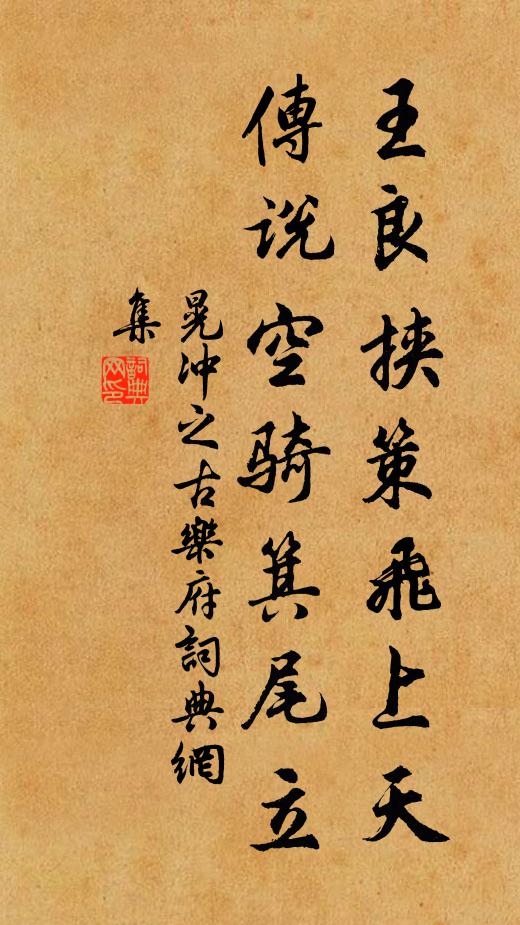 王良挾策飛上天
傳說空騎箕尾立
晁沖之古樂府詞典網
集
詞典網印